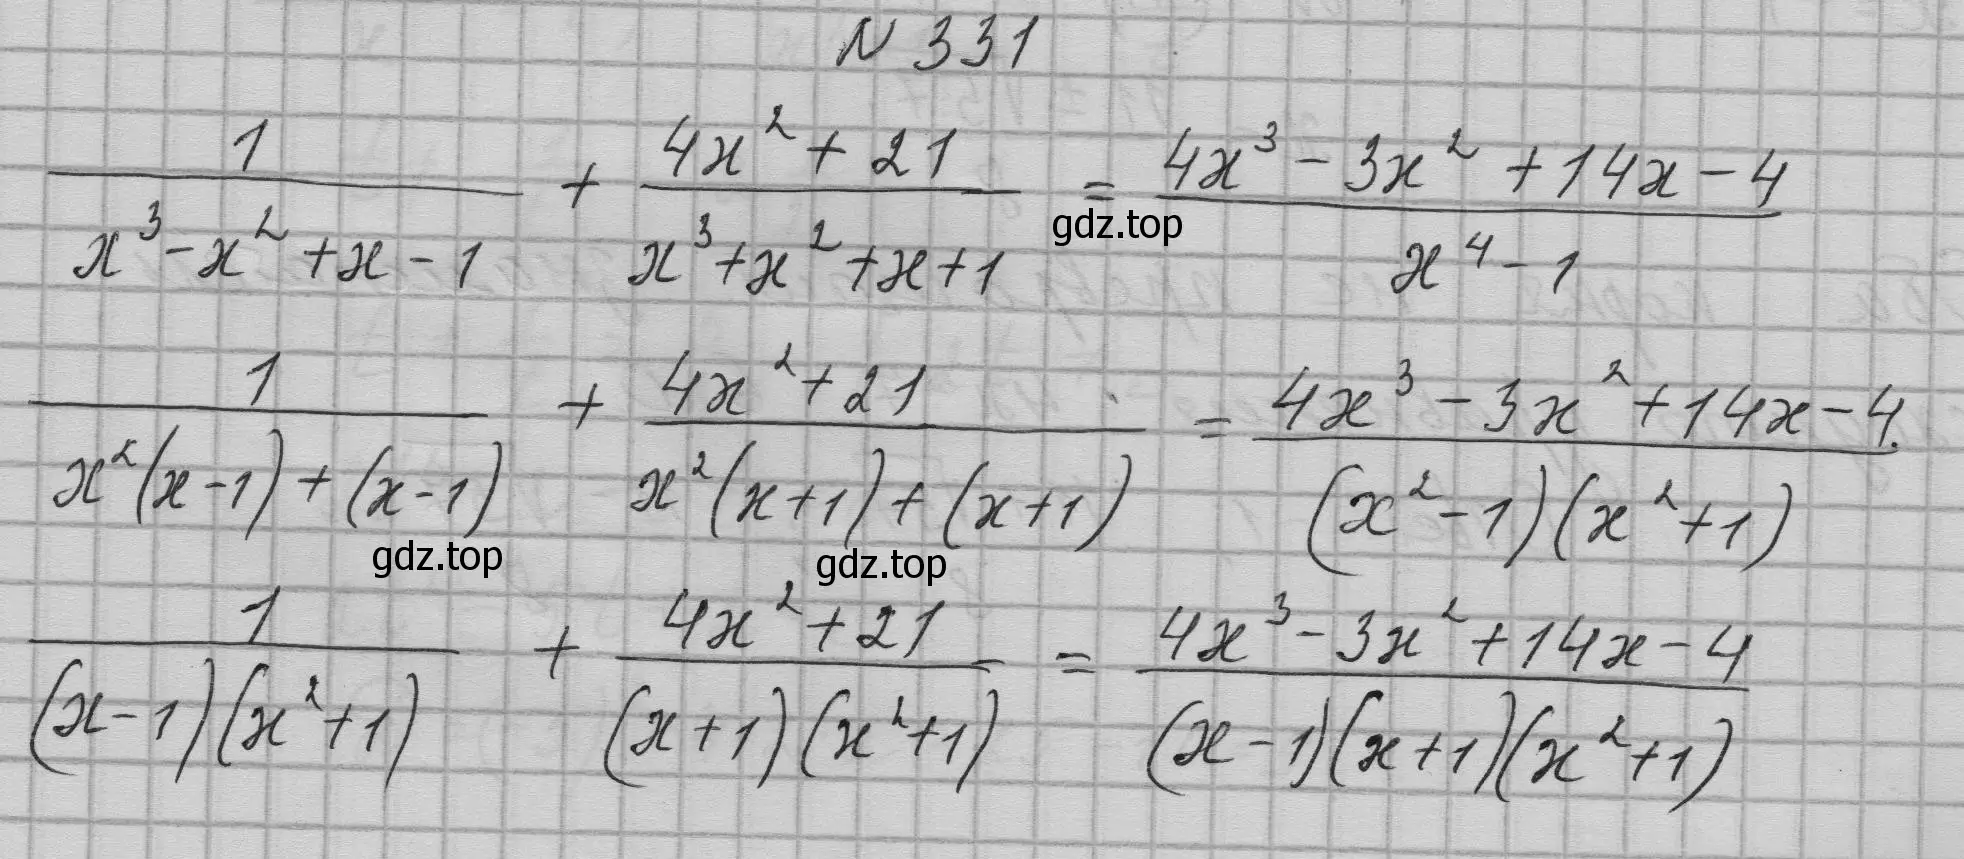 N 331
1/(x³-x²+x-1) + (4x²+21)/(x³+x²+x+1) = (4x³-3x²+14x-4)/(x⁴-1)
gdz.top
1/(x²(x-1)+(x-1)) + (4x²+21)/(x²(x+1)+(x+1)) = (4x³-3x²+14x-4)/((x²-1)(x²+1))
gdz.top gdz.top
1/((x-1)(x²+1)) + (4x²+21)/((x+1)(x²+1)) = (4x³-3x²+14x-4)/((x-1)(x+1)(x²+1))